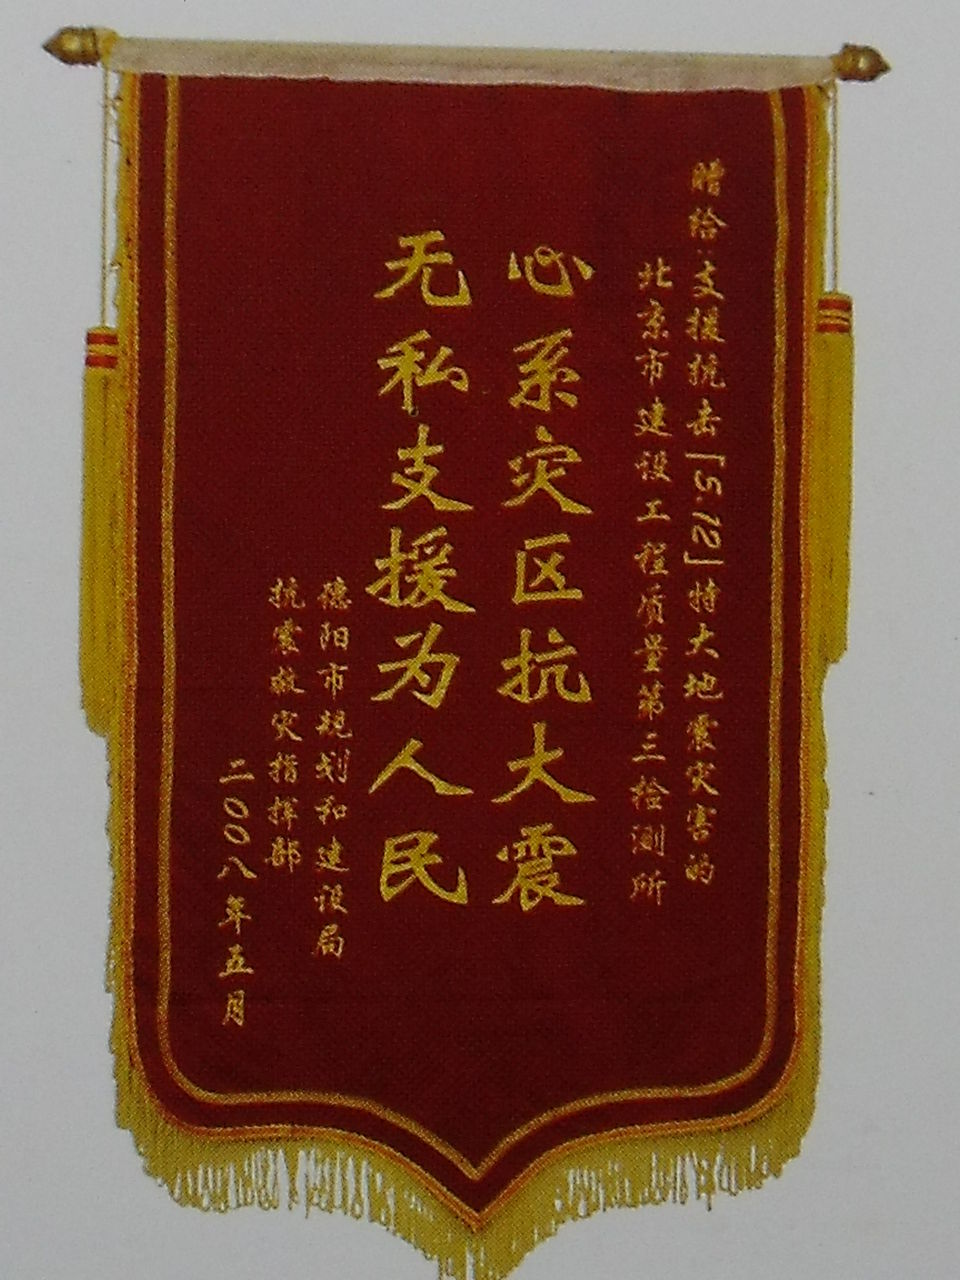 赠给支援抗击「5.12」特大地震灾害的
北京市建设工程质量第三检测所
心系灾区抗大震
无私支援为人民
德阳市规划和建设局
抗震救灾指挥部
二〇〇八年五月